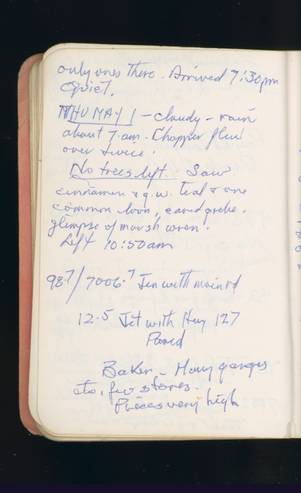 only ones there. Arrived 7:30pm
Quiet.
THU MAY 1 - cloudy - rain
about 7 am. Chopper flew
over twice.
No trees left. Saw
cinnamon & g.w. teal & one
common loon, eared grebe.
glimpse of marsh wren.
Left 10:50am
98.7/7006.7 Jcn with main rd
12.5 Jct with Hwy 127
Paved
Baker - Many garages
etc, few stores.
Prices very high